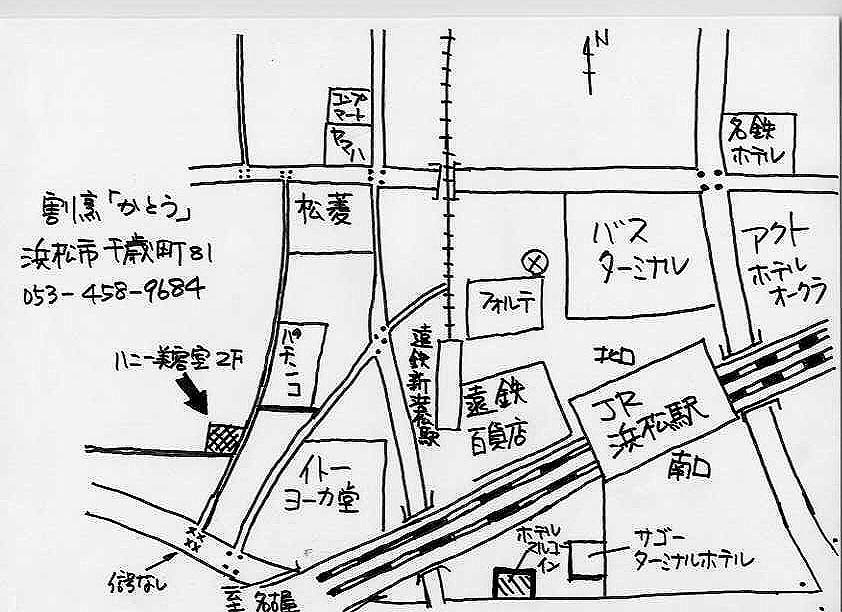 N
コンプ
マート
ヤマハ
名鉄
ホテル
割烹「かとう」
浜松市千歳町81
053-458-9684
松菱
バス
ターミナル
アクト
ホテル
オークラ
フォルテ
ハニー美容室2F
パチンコ
遠鉄新浜松駅
遠鉄
百貨店
北口
JR
浜松駅
南口
イトー
ヨーカ堂
ホテル
マルコー
イン
サゴー
ターミナルホテル
信号なし
至名古屋